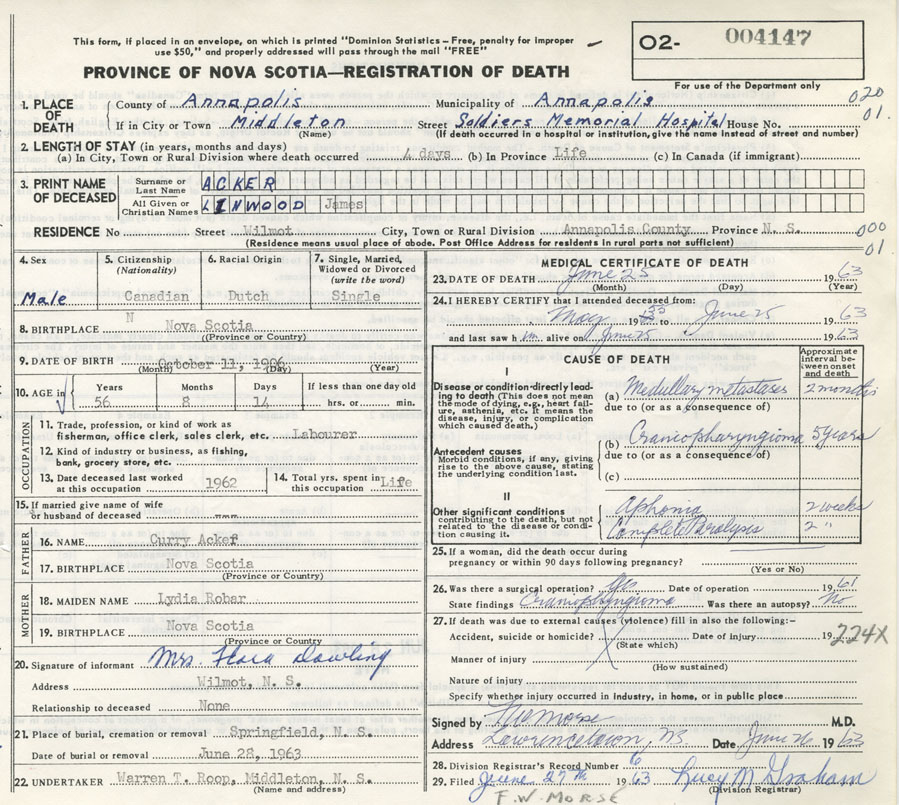 This form, if placed in an envelope, on which is printed "Dominion Statistics – Free, penalty for improper
use $50," and properly addressed will pass through the mail "FREE"
O2- 004147
For use of the Department only
PROVINCE OF NOVA SCOTIA—REGISTRATION OF DEATH
1. PLACE OF DEATH
County of Annapolis Municipality of Annapolis 020
If in City or Town Middleton Street Soldiers Memorial Hospital House No. 01.
(Name) (If death occurred in a hospital or institution, give the name instead of street and number)
2. LENGTH OF STAY (in years, months and days)
(a) In City, Town or Rural Division where death occurred 4 days (b) In Province Life (c) In Canada (if immigrant)
3. PRINT NAME OF DECEASED
Surname or Last Name ACKER
All Given or Christian Names LINWOOD James
RESIDENCE No Street Wilmot City, Town or Rural Division Annapolis County Province N. S. 000
(Residence means usual place of abode. Post Office Address for residents in rural parts not sufficient) 01
4. Sex
Male
5. Citizenship
(Nationality)
Canadian
6. Racial Origin
Dutch
7. Single, Married,
Widowed or Divorced
(write the word)
Single
N
8. BIRTHPLACE Nova Scotia
(Province or Country)
9. DATE OF BIRTH October 11, 1906
(Month) (Day) (Year)
10. AGE in
Years Months Days If less than one day old
56 8 14 hrs. or min.
OCCUPATION
11. Trade, profession, or kind of work as
fisherman, office clerk, sales clerk, etc. Labourer
12. Kind of industry or business, as fishing,
bank, grocery store, etc.
13. Date deceased last worked
at this occupation 1962
14. Total yrs. spent in
this occupation Life
15. If married give name of wife
or husband of deceased
FATHER
16. NAME Curry Acker
17. BIRTHPLACE Nova Scotia
(Province or Country)
MOTHER
18. MAIDEN NAME Lydia Robar
19. BIRTHPLACE Nova Scotia
(Province or Country
20. Signature of informant Mrs. Flora Dowling
Address Wilmot, N. S.
Relationship to deceased None
21. Place of burial, cremation or removal Springfield, N. S.
Date of burial or removal June 28, 1963
22. UNDERTAKER Warren T. Roop, Middleton, N.S.
(Name and address)
MEDICAL CERTIFICATE OF DEATH
23. DATE OF DEATH June 25 1963
(Month) (Day) (Year)
24. I HEREBY CERTIFY that I attended deceased from:
May 19 to June 25 1963
and last saw him alive on June 25 1963
CAUSE OF DEATH
Approximate
interval be-
tween onset
and death
I
Disease or condition directly lead-
ing to death (This does not mean
the mode of dying, e.g., heart fail-
ure, asthenia, etc. It means the
disease, injury, or complication
which caused death.)
(a) Medullary metastases 2 months
due to (or as a consequence of)
Antecedent causes
Morbid conditions, if any, giving
rise to the above cause, stating
the underlying condition last.
(b) Craniopharyngioma 5 years
due to (or as a consequence of)
(c)
II
Other significant conditions
contributing to the death, but not
related to the disease or condi-
tion causing it.
Aphonia 2 weeks
Complete Paralysis 2 "
25. If a woman, did the death occur during
pregnancy or within 90 days following pregnancy?
(Yes or No)
26. Was there a surgical operation? Yes Date of operation 1961
State findings Craniophayngioma Was there an autopsy? No
27. If death was due to external causes (violence) fill in also the following:–
Accident, suicide or homicide? Date of injury 19 224X
(State which)
Manner of injury
(How sustained)
Nature of injury
Specify whether injury occurred in industry, in home, or in public place
Signed by FWMorse M.D.
Address Lawrencetown, NS Date June 26 1963
28. Division Registrar's Record Number 6
29. Filed June 27th 1963 Lucy M Graham
(Division Registrar)
F.W. MORSE